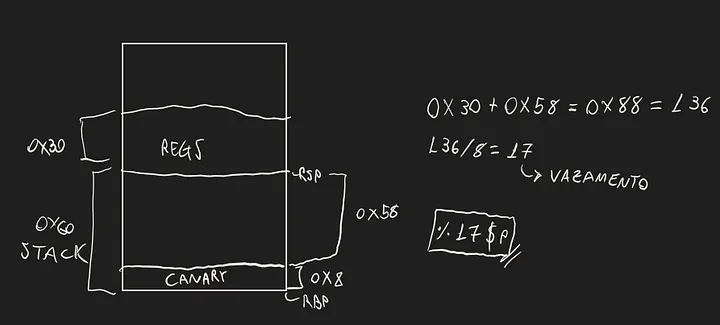 0X30
REGS
RSP
0X60
STACK
0X58
CANARY
0X8
RBP
0X30 + 0X58 = 0X88 = 136
136/8 = 17
VAZAMENTO
%17$p